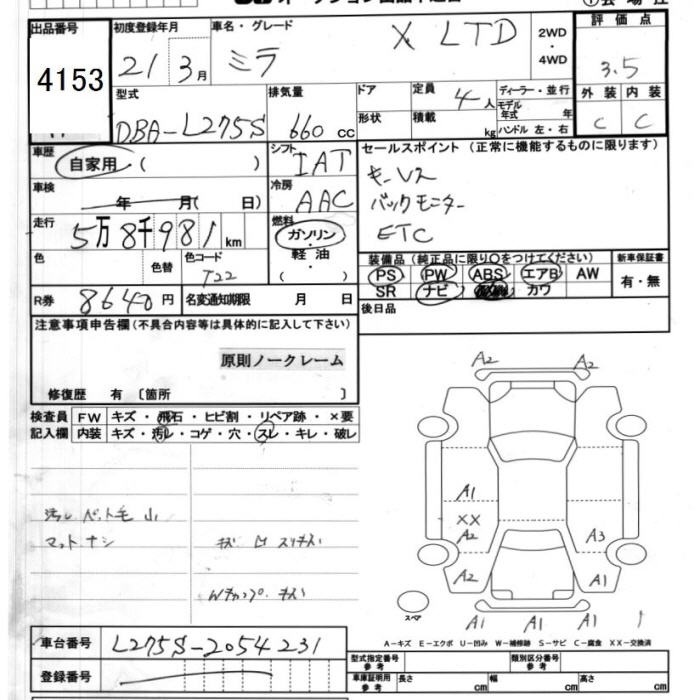 出品番号 初度登録年月 車名・グレード 2WD ・ 4WD 評価点
4153 21 3月 ミラ X LTD 3.5
型式 排気量 ドア 定員 4人 ディーラー・並行 外装 内装
形状 積載 kg モデル年式 年 ハンドル 左・右
DBA-L275S 660 cc C C
車歴 自家用 ( ) シフト IAT セールスポイント (正常に機能するものに限ります)
車検 年 月( 日) 冷房 AAC
キーレス
バックモニター
ETC
走行 5万8千981km 燃料 ガソリン・軽油・( )
色 色替 色コード T22
装備品 (純正品に限り〇をつけてください) 新車保証書
PS PW ABS エアB AW 有・無
SR ナビ カワ
R券 8640円 名変通知期限 月 日 後日品
注意事項申告欄(不具合内容等は具体的に記入して下さい)
原則ノークレーム
修復歴 有 〔箇所 〕
検査員 FW キズ・飛石・ヒビ割・リペア跡・×要
記入欄 内装 キズ・汚レ・コゲ・穴・スレ・キレ・破レ
汚レ ペット毛 小
マット ナシ
キズ 凹 スリキズ
Wチップ キズ
A2 A2
A1
XX
A2 A3
A2 A1
スペア A1 A1 A1
A-キズ E-エクボ U-凹み W-補修跡 S-サビ C-腐食 XX-交換済
車台番号 L275S-2054231
登録番号
型式指定番号 参考 類別区分番号 参考
車庫証明用 参考 長さ cm 幅 cm 高さ cm